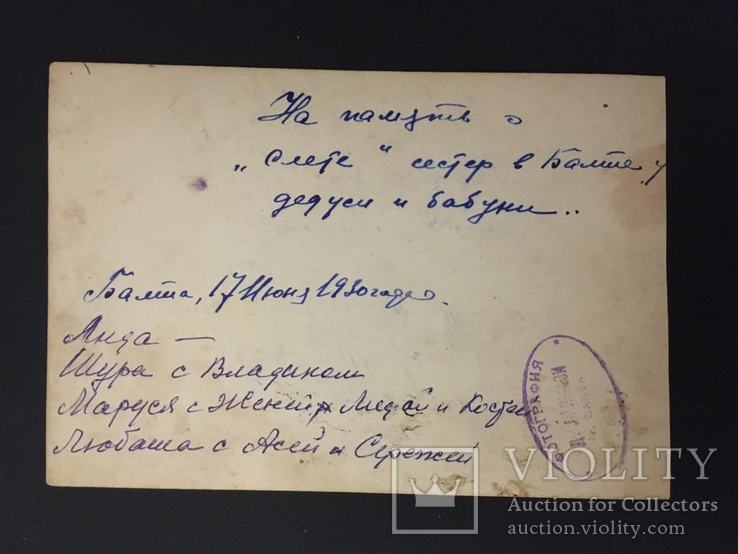 На память о
„слете" сестер в Балте у
дедуси и бабуни..
Балта, 17 Июня 1930 года.
Лида —
Шура с Владиком
Маруся с Женей, Лидой и Костей
Любаша с Асей и Сережей
ФОТОГРАФИЯ
БАЛТА
VIOLITY
Auction for Collectors
auction.violity.com